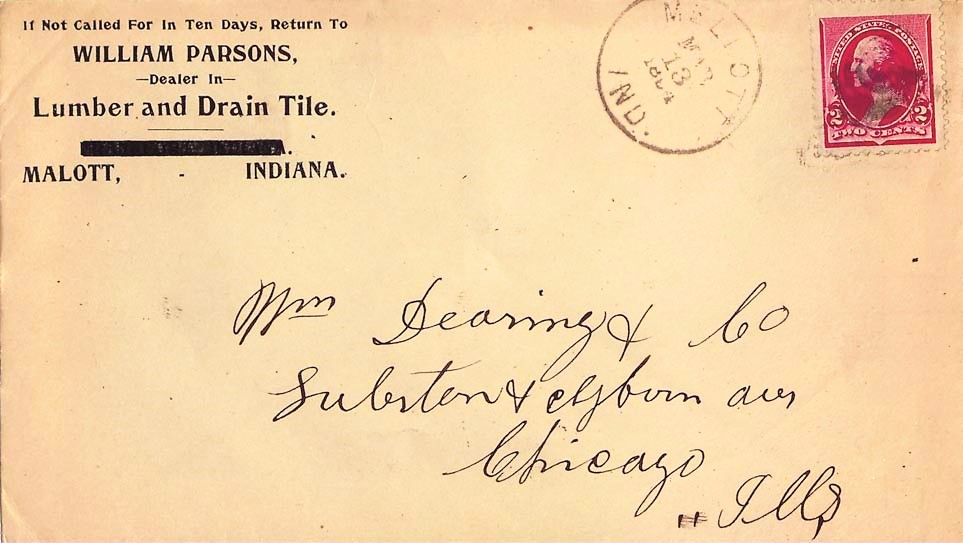 If Not Called For In Ten Days, Return To
WILLIAM PARSONS,
—Dealer In—
Lumber and Drain Tile.
MALOTT, - INDIANA.
MELLOTT
13
IND.
UNITED STATES POSTAGE
2 2
TWO CENTS
Wm Deering & Co
Fullerton & Clybourn aves
Chicago
" Ills